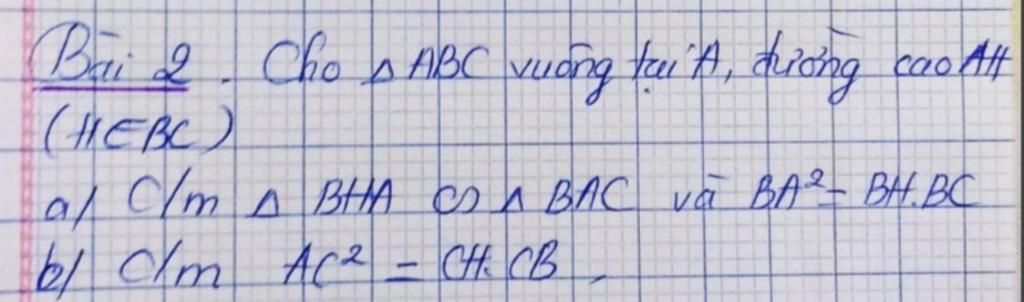 Bài 2. Cho △ABC vuông tại A, đường cao AH
(H∈BC)
a/ C/m △ BHA ∽ △ BAC và BA² = BH.BC
b/ C/m AC² = CH.CB,